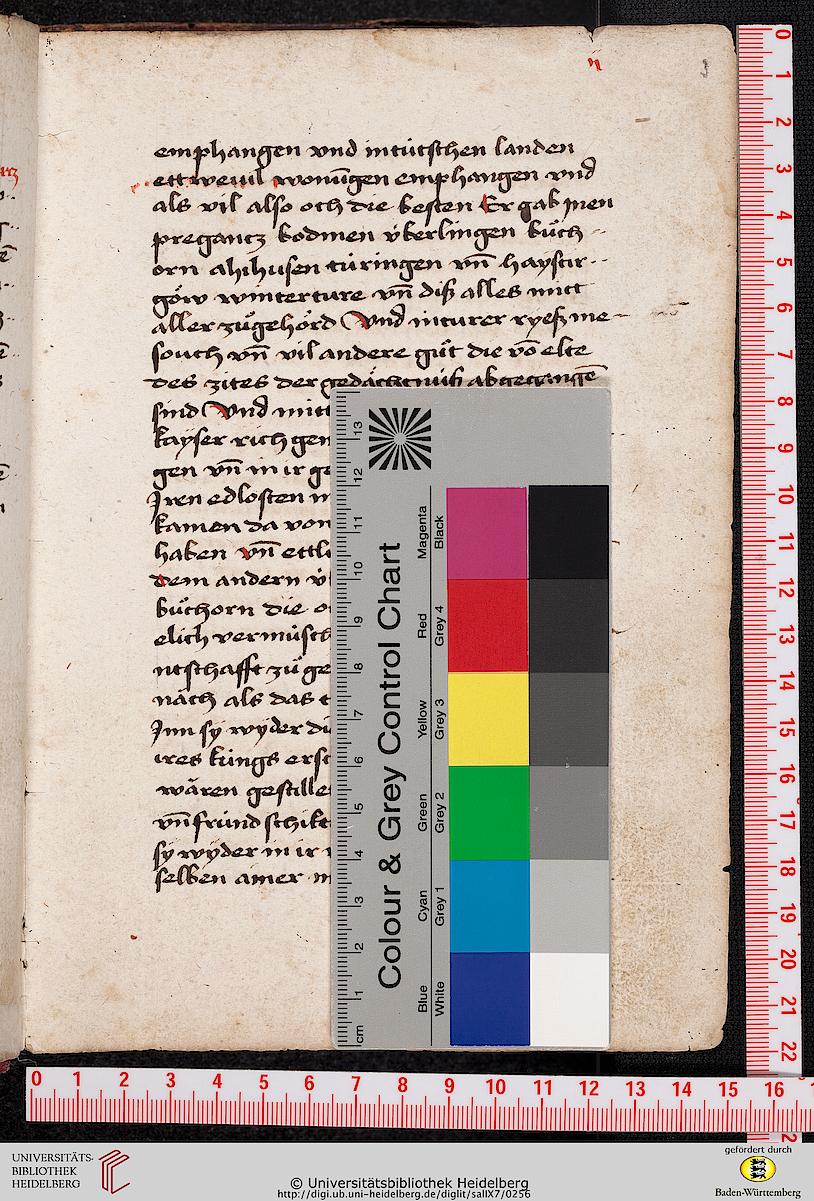 ij
emphangen vnd in tütschen landen
ettwevil wonūgen emphangen vnd
als vil also och die besten Er gab jnen
pregancz bodmen v̈berlingen bůch
orn ahihusen türingen vn̄ haystir
göw winterture vn̄ diß alles mitt
aller zůgehörd Vnd in turer
souch vn̄ vil andere gůt die vō elte
des zites der gedächtnüß abgegangē
sind Vnd mitt
kayser rich gen
gen vn̄ in ir ge
Jren edlosten
kamen da von
haben vn̄ ettli
dem andern
bůchorn die
elich vermüsch
ntschafft zů ge
näch als das
Jnn sy wyder di
ires küngs ersc
wären gestille
vn̄ fründ schikt
sy wyder in ir
selben ainer
Colour & Grey Control Chart
Magenta Red Yellow Green Cyan Blue
Black Grey 4 Grey 3 Grey 2 Grey 1 White
13 12 11 10 9 8 7 6 5 4 3 2 1 cm
0 1 2 3 4 5 6 7 8 9 10 11 12 13 14 15 16 17 18 19 20 21 22 2
0 1 2 3 4 5 6 7 8 9 10 11 12 13 14 15 16 1
UNIVERSITÄTS-
BIBLIOTHEK
HEIDELBERG
© Universitätsbibliothek Heidelberg
http://digi.ub.uni-heidelberg.de/diglit/salIX7/0256
gefördert durch
Baden-Württemberg